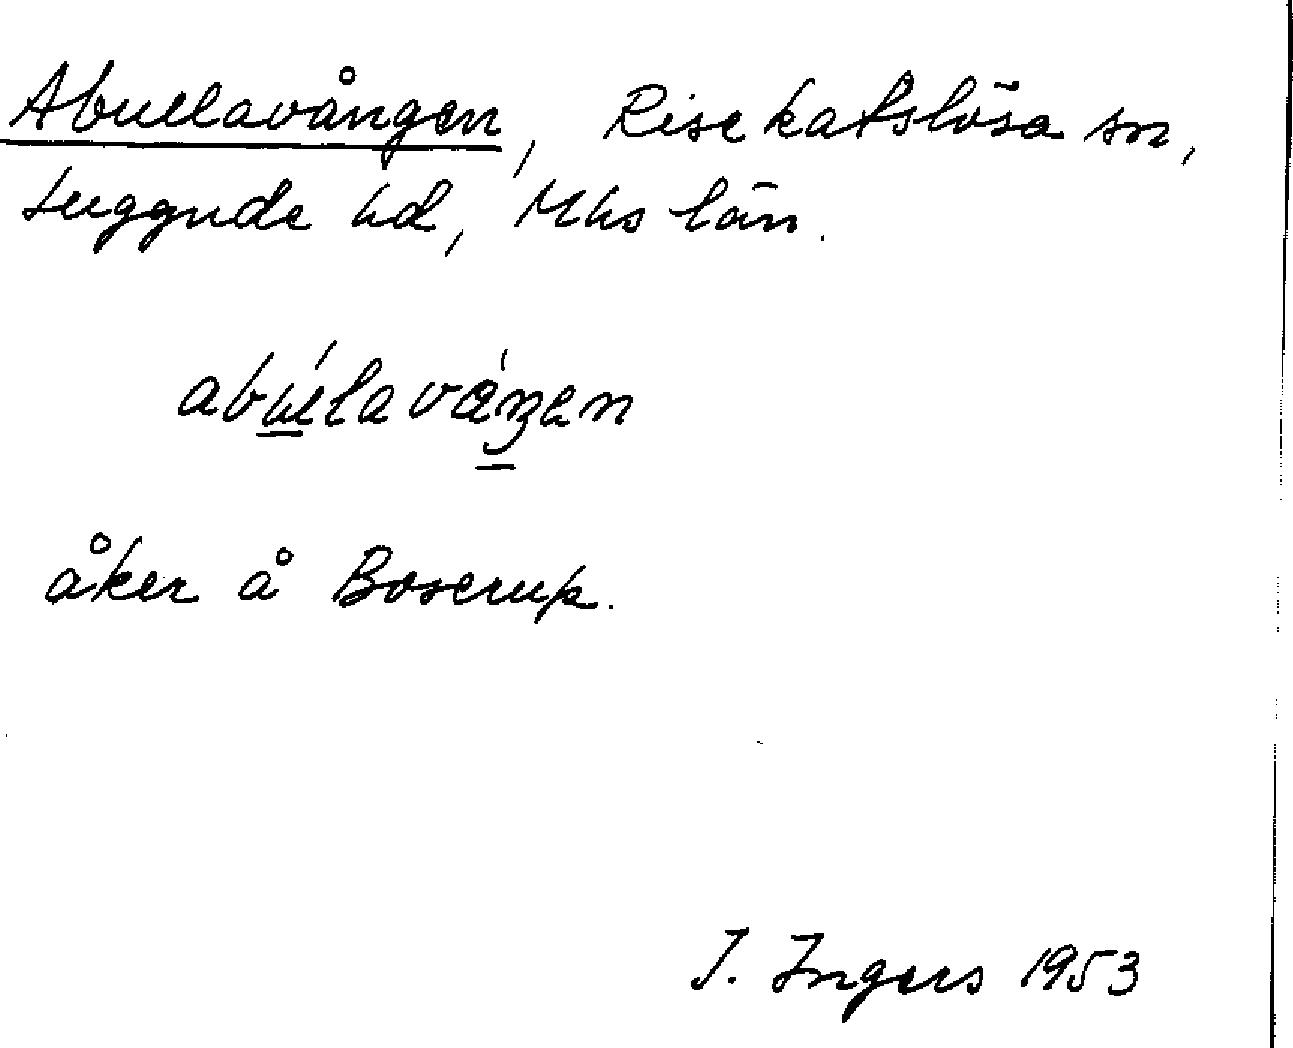 Abullavången, Risekatslösa sn,
Luggude hd, Mhs län.
abúlaváŋen
åker å Boserup.
I. Ingers 1953